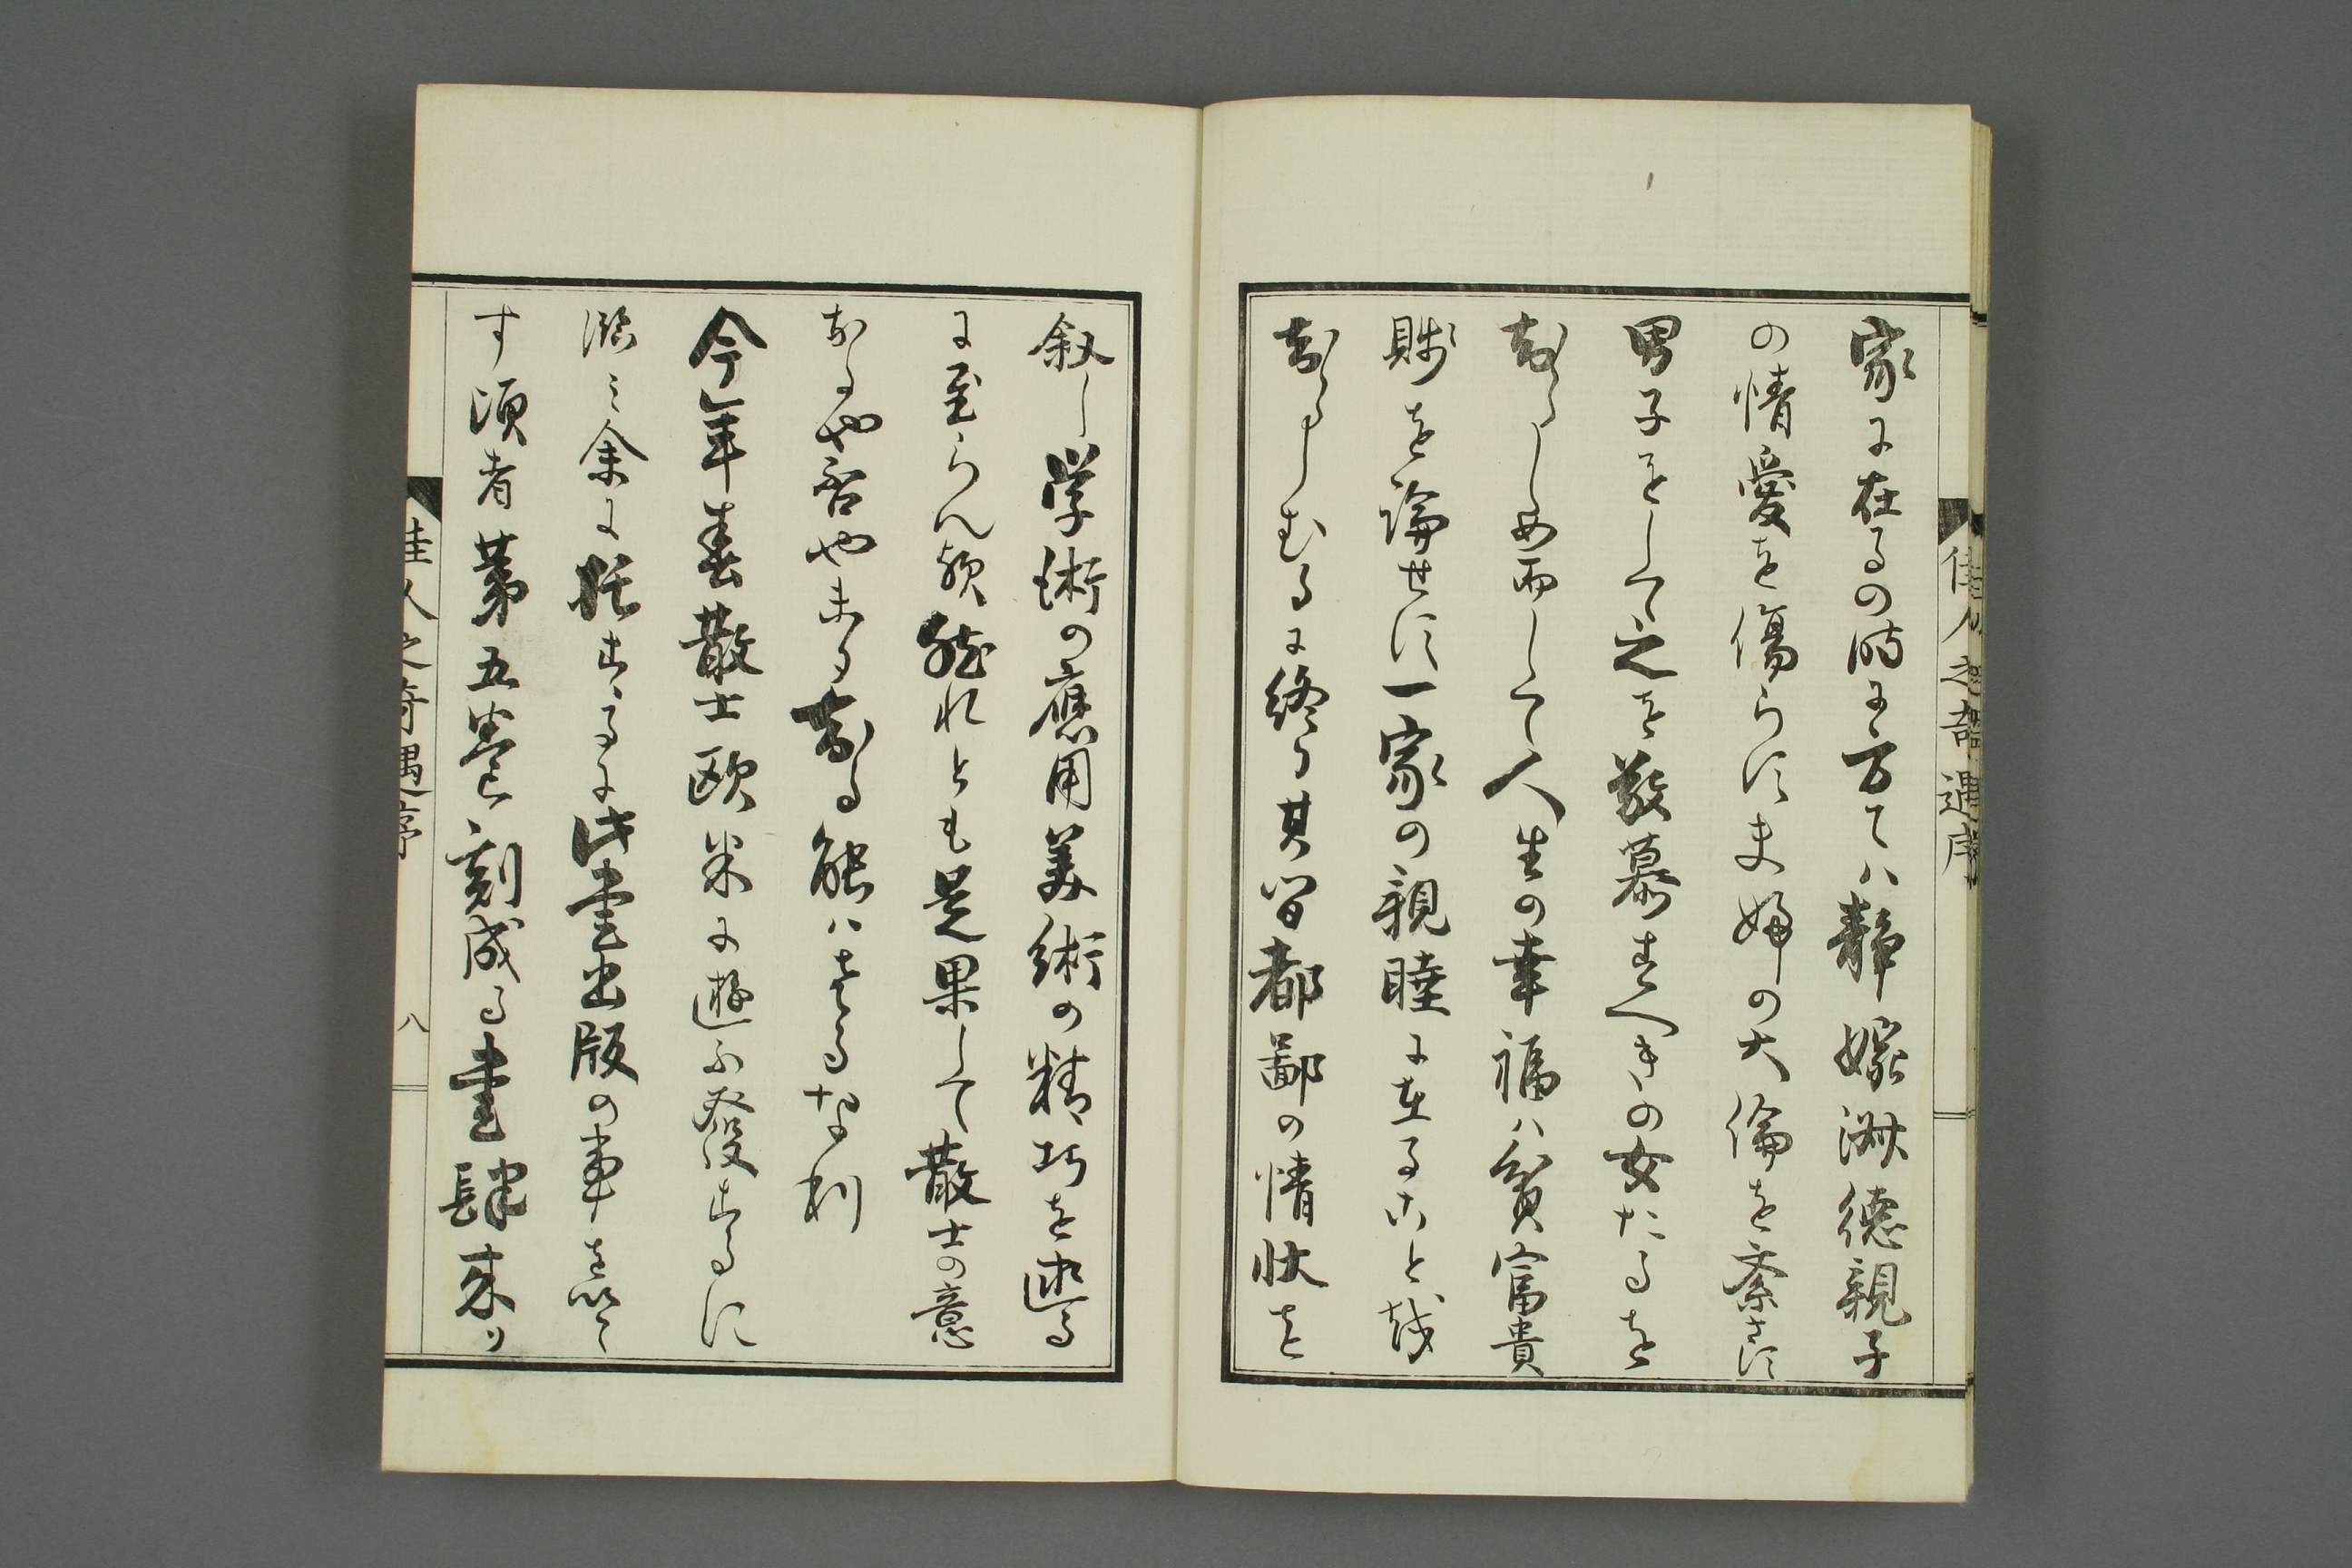 佳人之奇遇序
家に在るの時に方ては靜嫁淑徳親子
の情愛を傷らす夫婦の大倫を紊さす
男子をして之を敬慕すへきの女たるを
知らしめ而して人生の幸福は貧富貴
賎を論せす一家の親睦に在ることを
知らしむるに終り其間都鄙の情状を
叙し学術の應用美術の精巧を述る
に至らん歟然れとも是果して散士の意
なるや否や未た知る能はさるなり
今年春散士欧米に遊ふ發するに
臨み余に托するに此書出版の事を以て
す頃者第五巻刻成る書肆来り
佳人之奇遇序
八